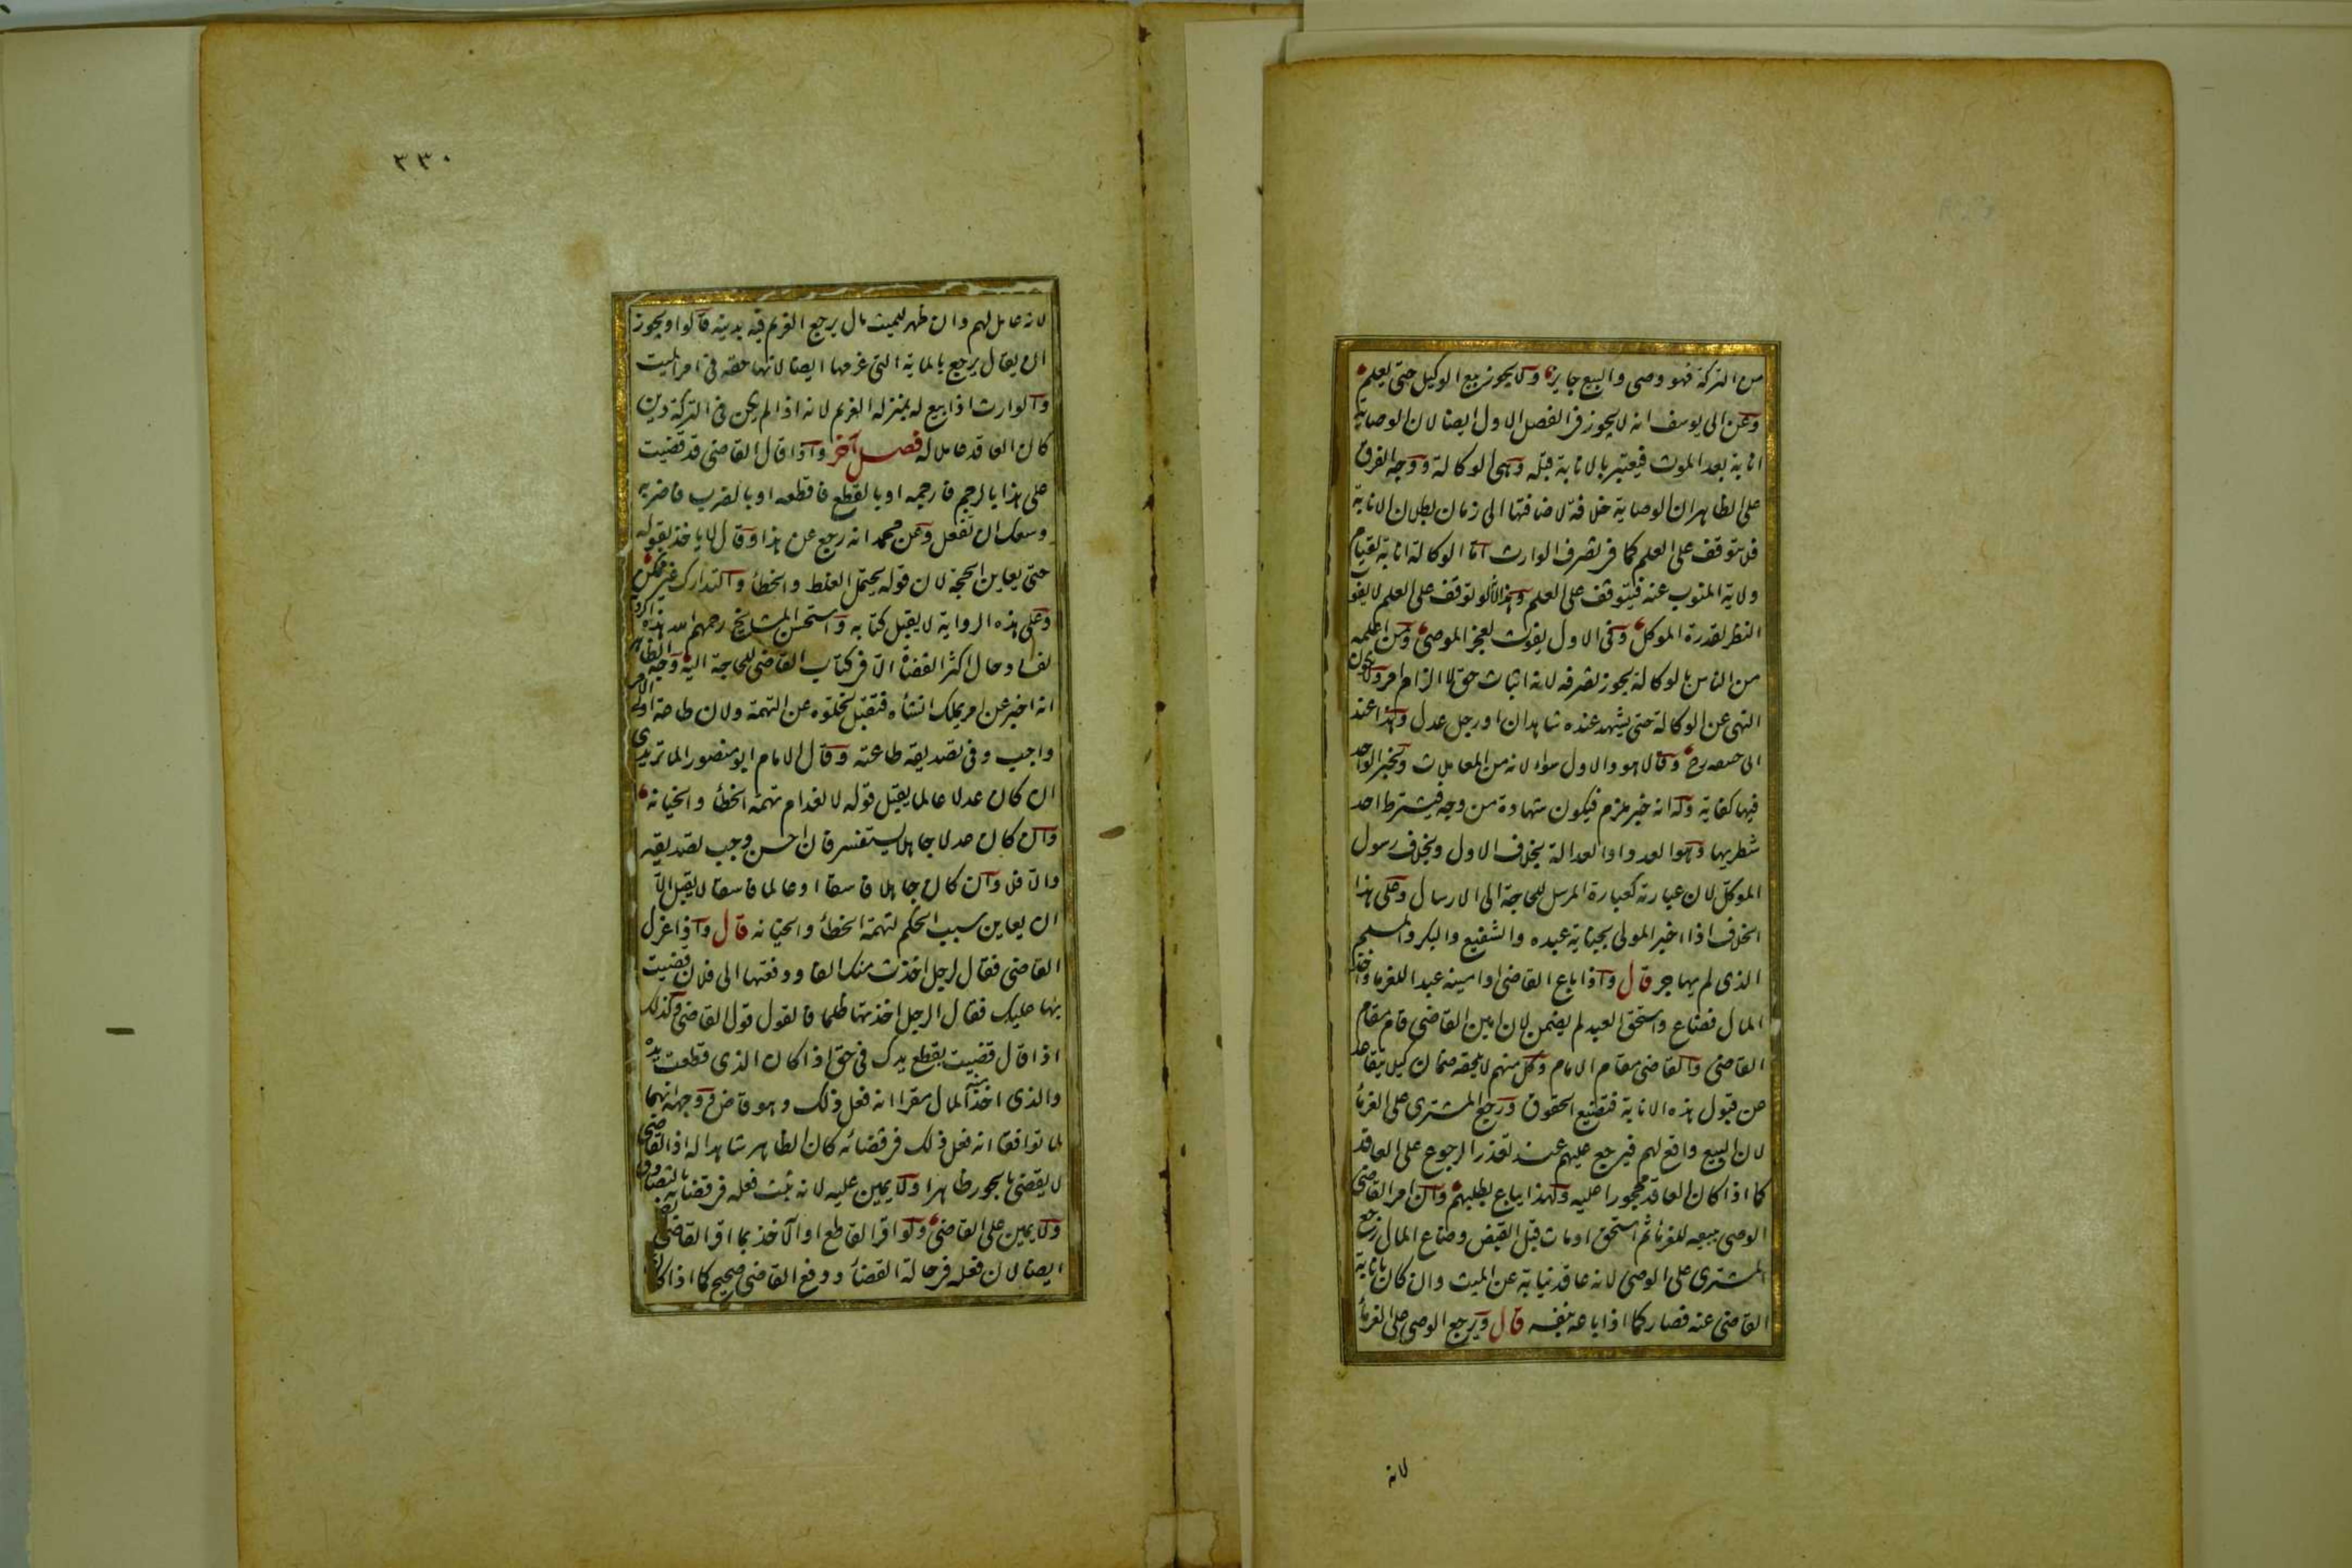 من التركة فهو وصي والبيع جايز ولا يجوز بيع الوكيل حتى يعلم
وعن ابى يوسف انه لا يجوز فى الفصل الاول ايضا لان الوصاية
انابة بعد الموت فيعتبر بالانابة قبله وهى الوكالة ووجه الفرق
على الظاهر ان الوصاية خلافة لاضافتها الى زمان بطلان الانابة
فلا يتوقف على العلم كما فى تصرف الوارث اما الوكالة انابة لقيام
ولاية المنوب عنه فيتوقف على العلم وهذا لانه لو توقف على العلم لا يفوت
النظر لقدرة الموكل وفى الاول يفوت لعجز الموصى ومن اعلمه
من الناس بالوكالة يجوز تصرفه لانه اثبات حق لا الزام امر ولا يكون
النهى عن الوكالة حتى يشهد عنده شاهدان او رجل عدل وهذا عند
ابى حنيفه رح وقالا هو والاول سواء لانه من المعاملات وبخبر الواحد
فيها كفاية وله انه خبر ملزم فيكون شهادة من وجه فيشترط احد
شطريها وهو العدد او العدالة بخلاف الاول وبخلاف رسول
الموكل لان عبارته كعبارة المرسل للحاجة الى الارسال وعلى هذا
الخلاف اذا اخبر المولى بجناية عبده والشفيع والبكر والمسلم
الذى لم يهاجر قال واذا باع القاضى او امينه عبدا للغرماء واخذ
المال فضاع واستحق العبد لم يضمن لان امين القاضى قام مقام
القاضى والقاضى مقام الامام وكل منهم لا يلحقه ضمان كيلا يتقاعد
عن قبول هذه الانابة فتضيع الحقوق ورجع المشترى على الغرماء
لان البيع واقع لهم فيرجع عليهم عند تعذر الرجوع على العاقد
كما اذا كان العاقد محجورا عليه ولهذا يباع بطلبهم وان امر القاضى
الوصى ببيعه للغرماء ثم استحق او مات قبل القبض وضاع المال رجع
المشترى على الوصى لانه عاقد نيابة عن الميت وان كان بانابة
القاضى عنه فصار كما اذا باعه بنفسه قال ويرجع الوصى على الغرماء
لانه
٣٣٠
لانه عامل لهم وان ظهر للميت مال يرجع الغريم فيه بدينه قالوا ويجوز
ان يقال يرجع بالماية التى غرمها ايضا لانها لحقه فى امر الميت
والوارث اذا بيع له بمنزلة الغريم لانه اذا لم يكن فى التركة دين
كان العاقد عاملا له فصل آخر واذا قال القاضى قد قضيت
على هذا بالرجم فارجمه او بالقطع فاقطعه او بالضرب فاضربه
وسعك ان تفعل وعن محمد انه رجع عن هذا وقال لا ياخذ بقوله
حتى يعاين الحجة لان قوله يحتمل الغلط والخطأ والتدارك غير ممكن
وعلى هذه الرواية لا يقبل كتابه واستحسن المشايخ رحمهم الله هذه الرواية
لفساد حال اكثر القضاة الا فى كتاب القاضى للحاجة اليه وجه الظاهر
انه اخبر عن امر يملك انشاه فتقبل لخلوه عن التهمة ولان طاعة اولى الامر
واجب وفى تصديقه طاعته وقال الامام ابو منصور الماتريدى
ان كان عدلا عالما يقبل قوله لانعدام تهمة الخطأ والخيانة
وان كان عدلا جاهلا يستفسر فان احسن وجب تصديقه
والا فلا وان كان جاهلا فاسقا او عالما فاسقا لا يقبل الا
ان يعاين سبب الحكم لتهمة الخطأ والخيانه قال واذا عزل
القاضى فقال لرجل اخذت منك الفا ودفعتها الى فلان قضيت
بها عليك فقال الرجل اخذتها ظلما فالقول قول القاضى وكذلك
اذا قال قضيت بقطع يدك فى حق اذا كان الذى قطعت يده
والذى اخذ منه المال مقرا انه فعل ذلك وهو قاض ووجهه انهما
لما توافقا انه فعل ذلك فى قضائه كان الظاهر شاهدا له اذ القاضى
لا يقضى بالجور ظاهرا ولا يمين عليه لانه ثبت فعله فى قضائه بالتصادق
ولا يمين على القاضى ولو اقر القاطع او الاخذ بما اقر القاضى
ايضا لان فعله فى حالة القضاء ودفع القاضى صحيح كما اذا كان